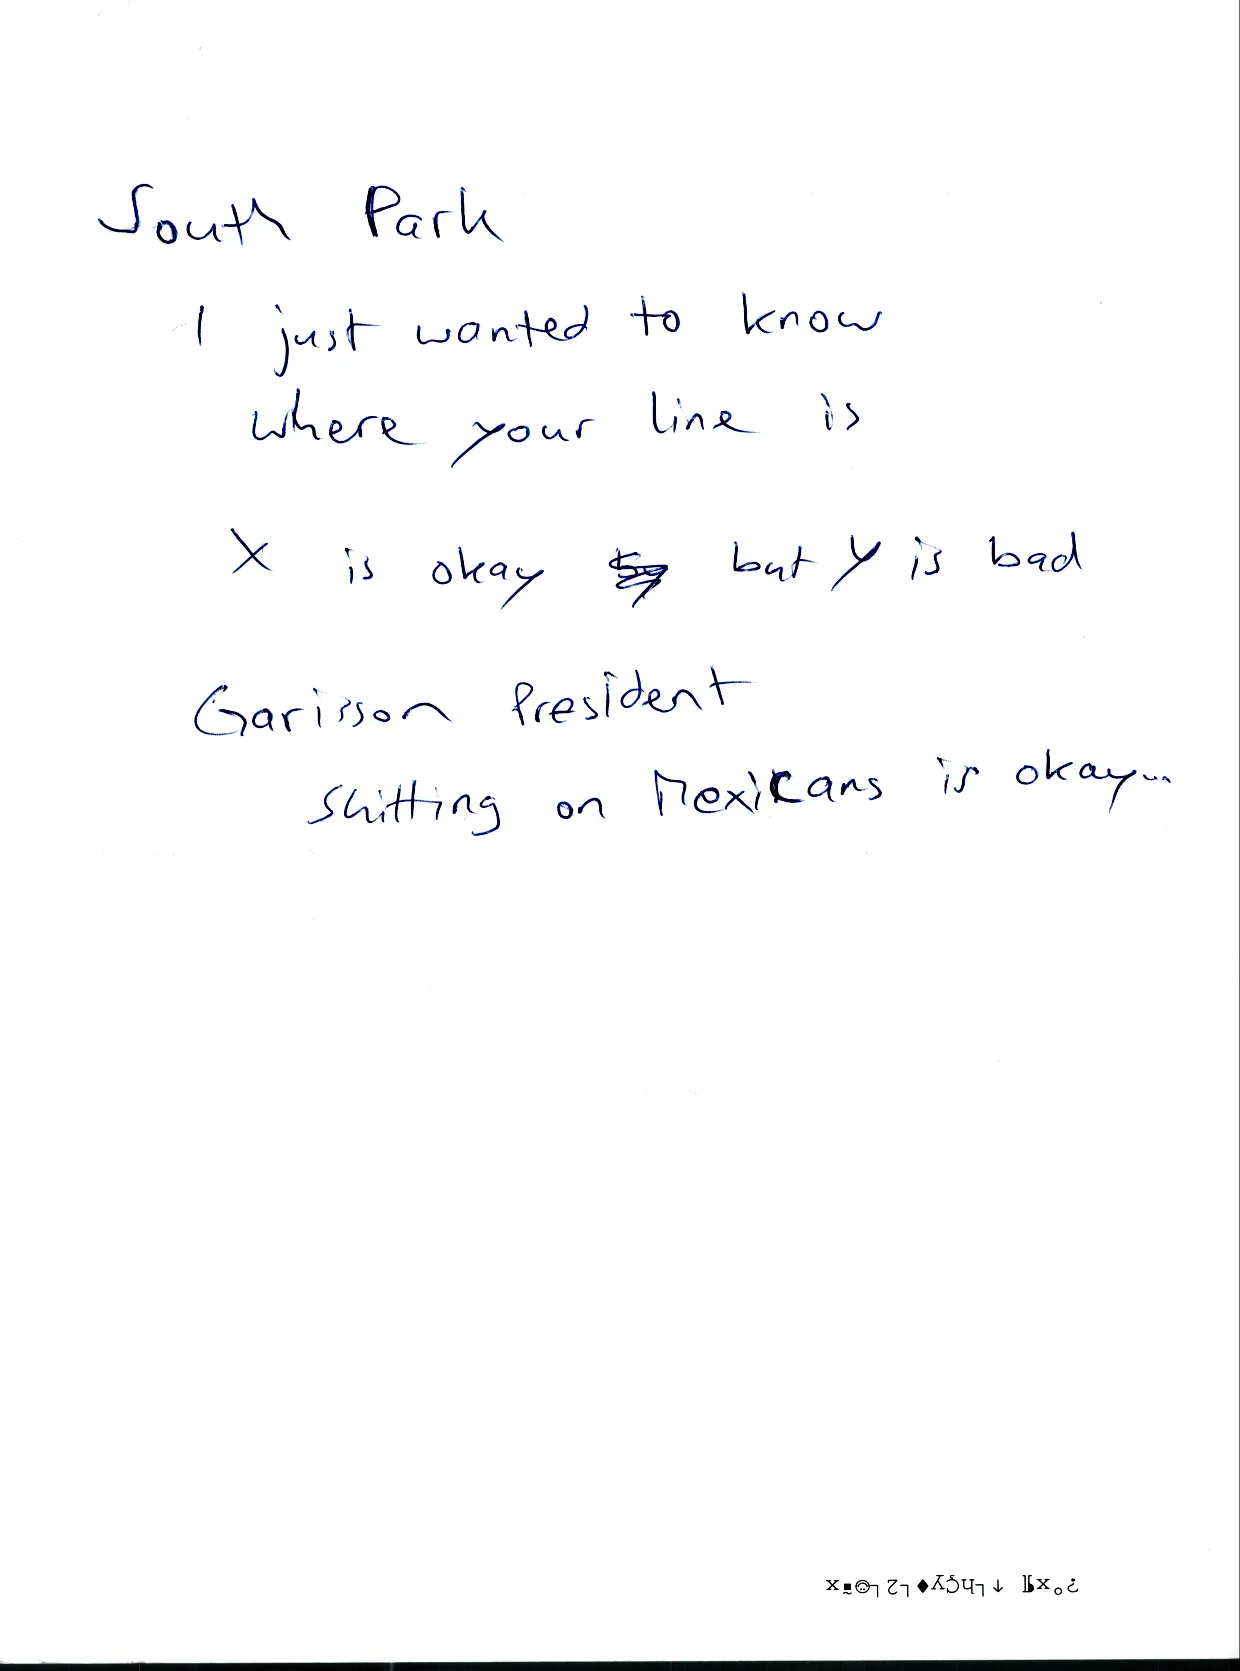 South Park
I just wanted to know
where your line is
X is okay but Y is bad
Garisson President
Shitting on Mexicans is okay...